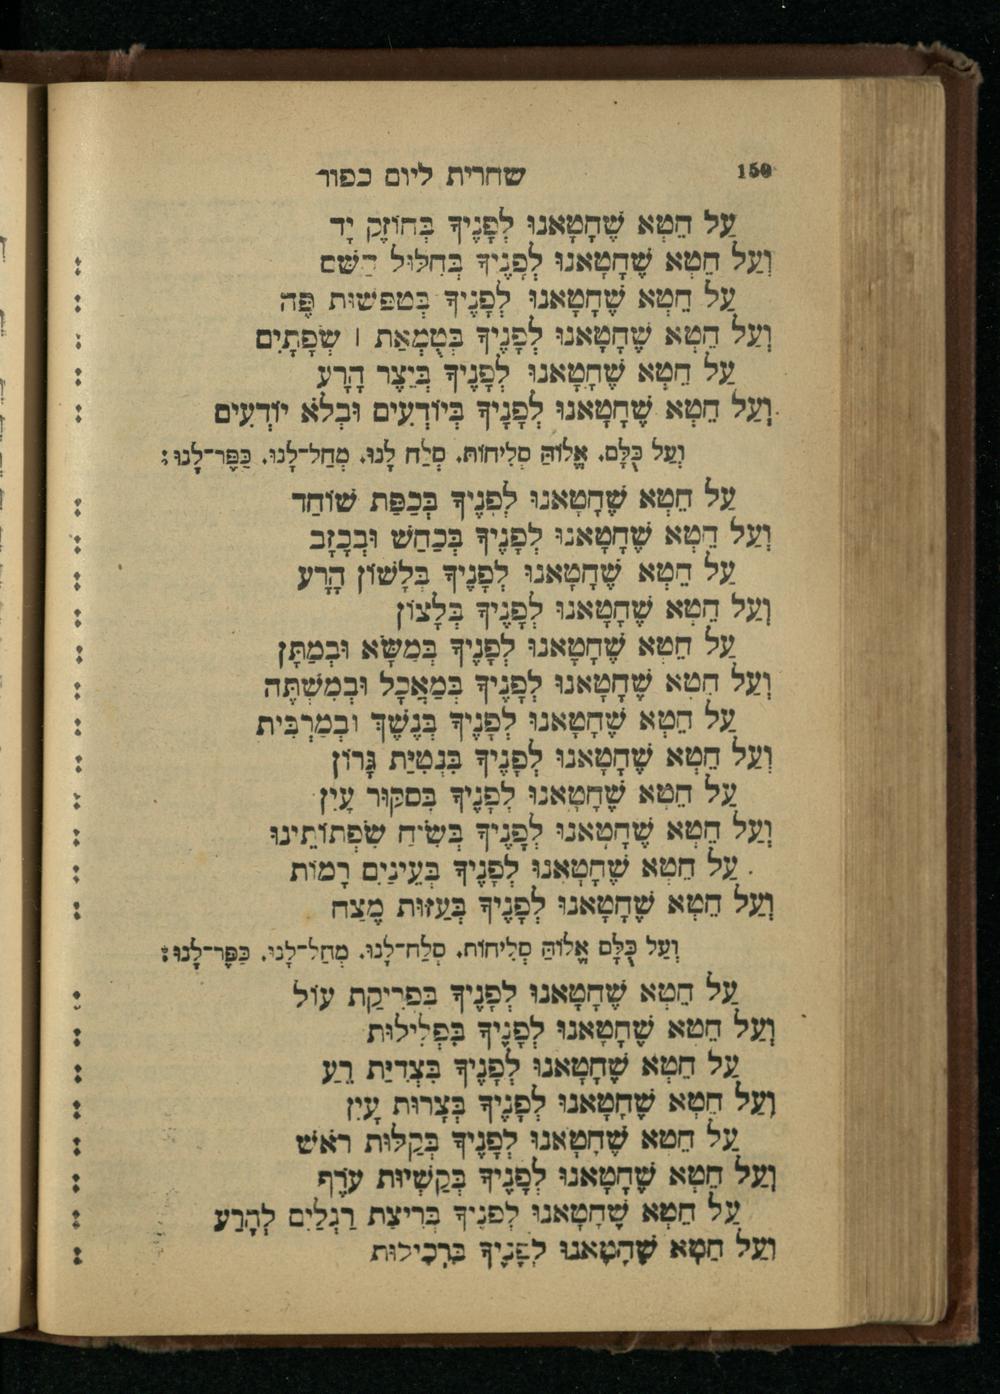 150 שחרית ליום כפור
עַל חֵטְא שֶׁחָטָאנוּ לְפָנֶיךָ בְּחוֹזֶק יָד
וְעַל חֵטְא שֶׁחָטָאנוּ לְפָנֶיךָ בְּחִלּוּל הַשֵּׁם :
עַל חֵטְא שֶׁחָטָאנוּ לְפָנֶיךָ בְּטִפְּשׁוּת פֶּה :
וְעַל חֵטְא שֶׁחָטָאנוּ לְפָנֶיךָ בְּטֻמְאַת | שְׂפָתָיִם :
עַל חֵטְא שֶׁחָטָאנוּ לְפָנֶיךָ בְּיֵצֶר הָרָע :
וְעַל חֵטְא שֶׁחָטָאנוּ לְפָנֶיךָ בְּיוֹדְעִים וּבְלֹא יוֹדְעִים :
וְעַל כֻּלָּם. אֱלוֹהַּ סְלִיחוֹת. סְלַח לָנוּ. מְחַל־לָנוּ. כַּפֶּר־לָנוּ :
עַל חֵטְא שֶׁחָטָאנוּ לְפָנֶיךָ בְּכַפַּת שׁוֹחַד :
וְעַל חֵטְא שֶׁחָטָאנוּ לְפָנֶיךָ בְּכַחַשׁ וּבְכָזָב :
עַל חֵטְא שֶׁחָטָאנוּ לְפָנֶיךָ בְּלָשׁוֹן הָרָע :
וְעַל חֵטְא שֶׁחָטָאנוּ לְפָנֶיךָ בְּלָצוֹן :
עַל חֵטְא שֶׁחָטָאנוּ לְפָנֶיךָ בְּמַשָּׂא וּבְמַתָּן :
וְעַל חֵטְא שֶׁחָטָאנוּ לְפָנֶיךָ בְּמַאֲכָל וּבְמִשְׁתֶּה :
עַל חֵטְא שֶׁחָטָאנוּ לְפָנֶיךָ בְּנֶשֶׁךְ וּבְמַרְבִּית :
וְעַל חֵטְא שֶׁחָטָאנוּ לְפָנֶיךָ בִּנְטִיַּת גָּרוֹן :
עַל חֵטְא שֶׁחָטָאנוּ לְפָנֶיךָ בְּסִקּוּר עָיִן :
וְעַל חֵטְא שֶׁחָטָאנוּ לְפָנֶיךָ בְּשִׂיחַ שִׂפְתוֹתֵינוּ :
עַל חֵטְא שֶׁחָטָאנוּ לְפָנֶיךָ בְּעֵינַיִם רָמוֹת :
וְעַל חֵטְא שֶׁחָטָאנוּ לְפָנֶיךָ בְּעַזּוּת מֶצַח :
וְעַל כֻּלָּם אֱלוֹהַּ סְלִיחוֹת. סְלַח־לָנוּ. מְחַל־לָנוּ. כַּפֶּר־לָנוּ :
עַל חֵטְא שֶׁחָטָאנוּ לְפָנֶיךָ בִּפְרִיקַת עוֹל :
וְעַל חֵטְא שֶׁחָטָאנוּ לְפָנֶיךָ בִּפְלִילוּת :
עַל חֵטְא שֶׁחָטָאנוּ לְפָנֶיךָ בִּצְדִיַּת רֵעַ :
וְעַל חֵטְא שֶׁחָטָאנוּ לְפָנֶיךָ בְּצָרוּת עָיִן :
עַל חֵטְא שֶׁחָטָאנוּ לְפָנֶיךָ בְּקַלּוּת רֹאשׁ :
וְעַל חֵטְא שֶׁחָטָאנוּ לְפָנֶיךָ בְּקַשְׁיוּת עֹרֶף :
עַל חֵטְא שֶׁחָטָאנוּ לְפָנֶיךָ בְּרִיצַת רַגְלַיִם לְהָרַע :
וְעַל חֵטְא שֶׁחָטָאנוּ לְפָנֶיךָ בִּרְכִילוּת :